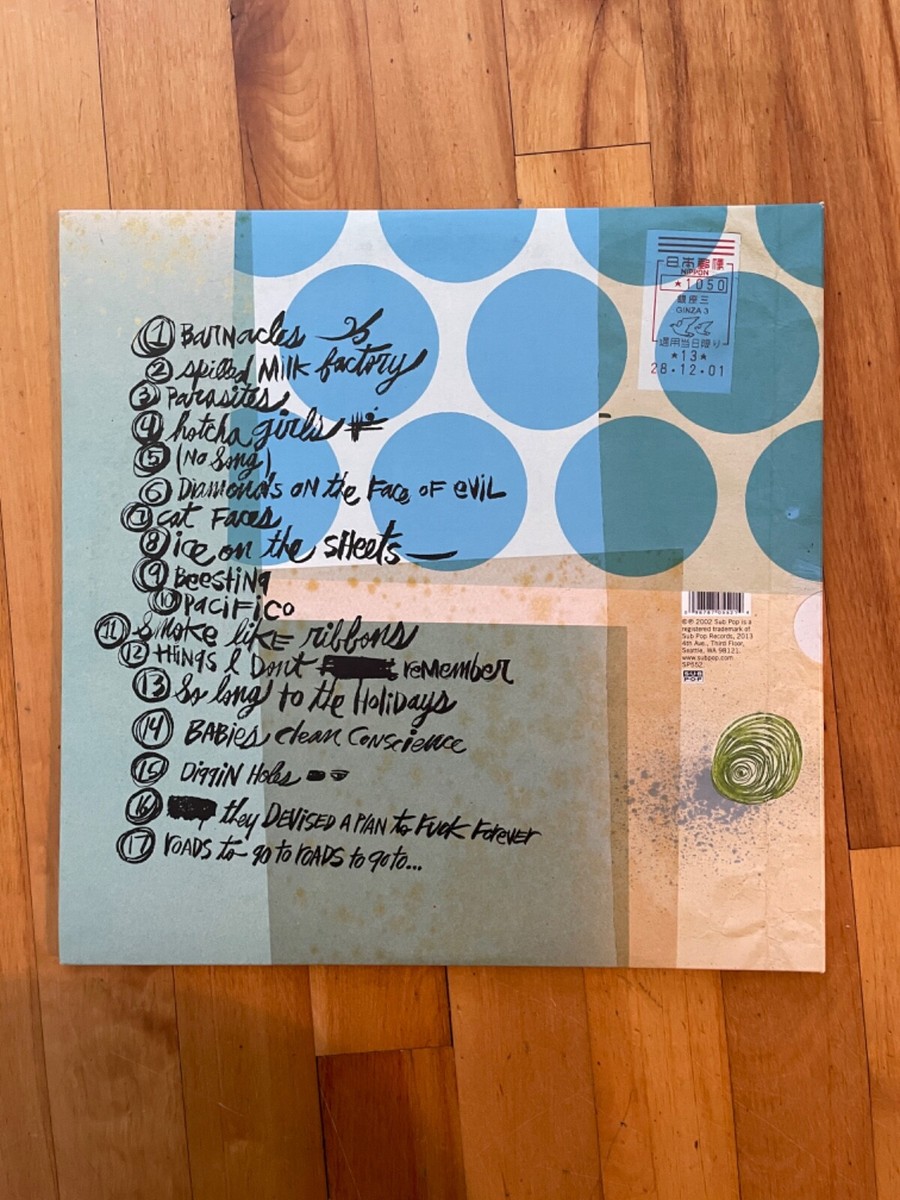 ① Barnacles
② spilled Milk factory
③ Parasites
④ hotcha girls
⑤ (No Song)
⑥ Diamonds on the Face of evil
⑦ cat Faces
⑧ ice on the sheets
⑨ Beesting
⑩ pacifico
⑪ smoke like ribbons
⑫ things I Dont remember
⑬ So long to the Holidays
⑭ BABies clean Conscience
⑮ Diggin Holes
⑯ they DEVISED A PLAN to Fuck Forever
⑰ roADS to go to roADS to go to...
日本郵便
NIPPON
★1050
銀座三
GINZA 3
適用当日限り
★13★
28.12.01
©℗ 2002 Sub Pop is a
registered trademark of
Sub Pop Records, 2013
4th Ave., Third Floor,
Seattle, WA 98121.
www.subpop.com
SP552
SUB
POP